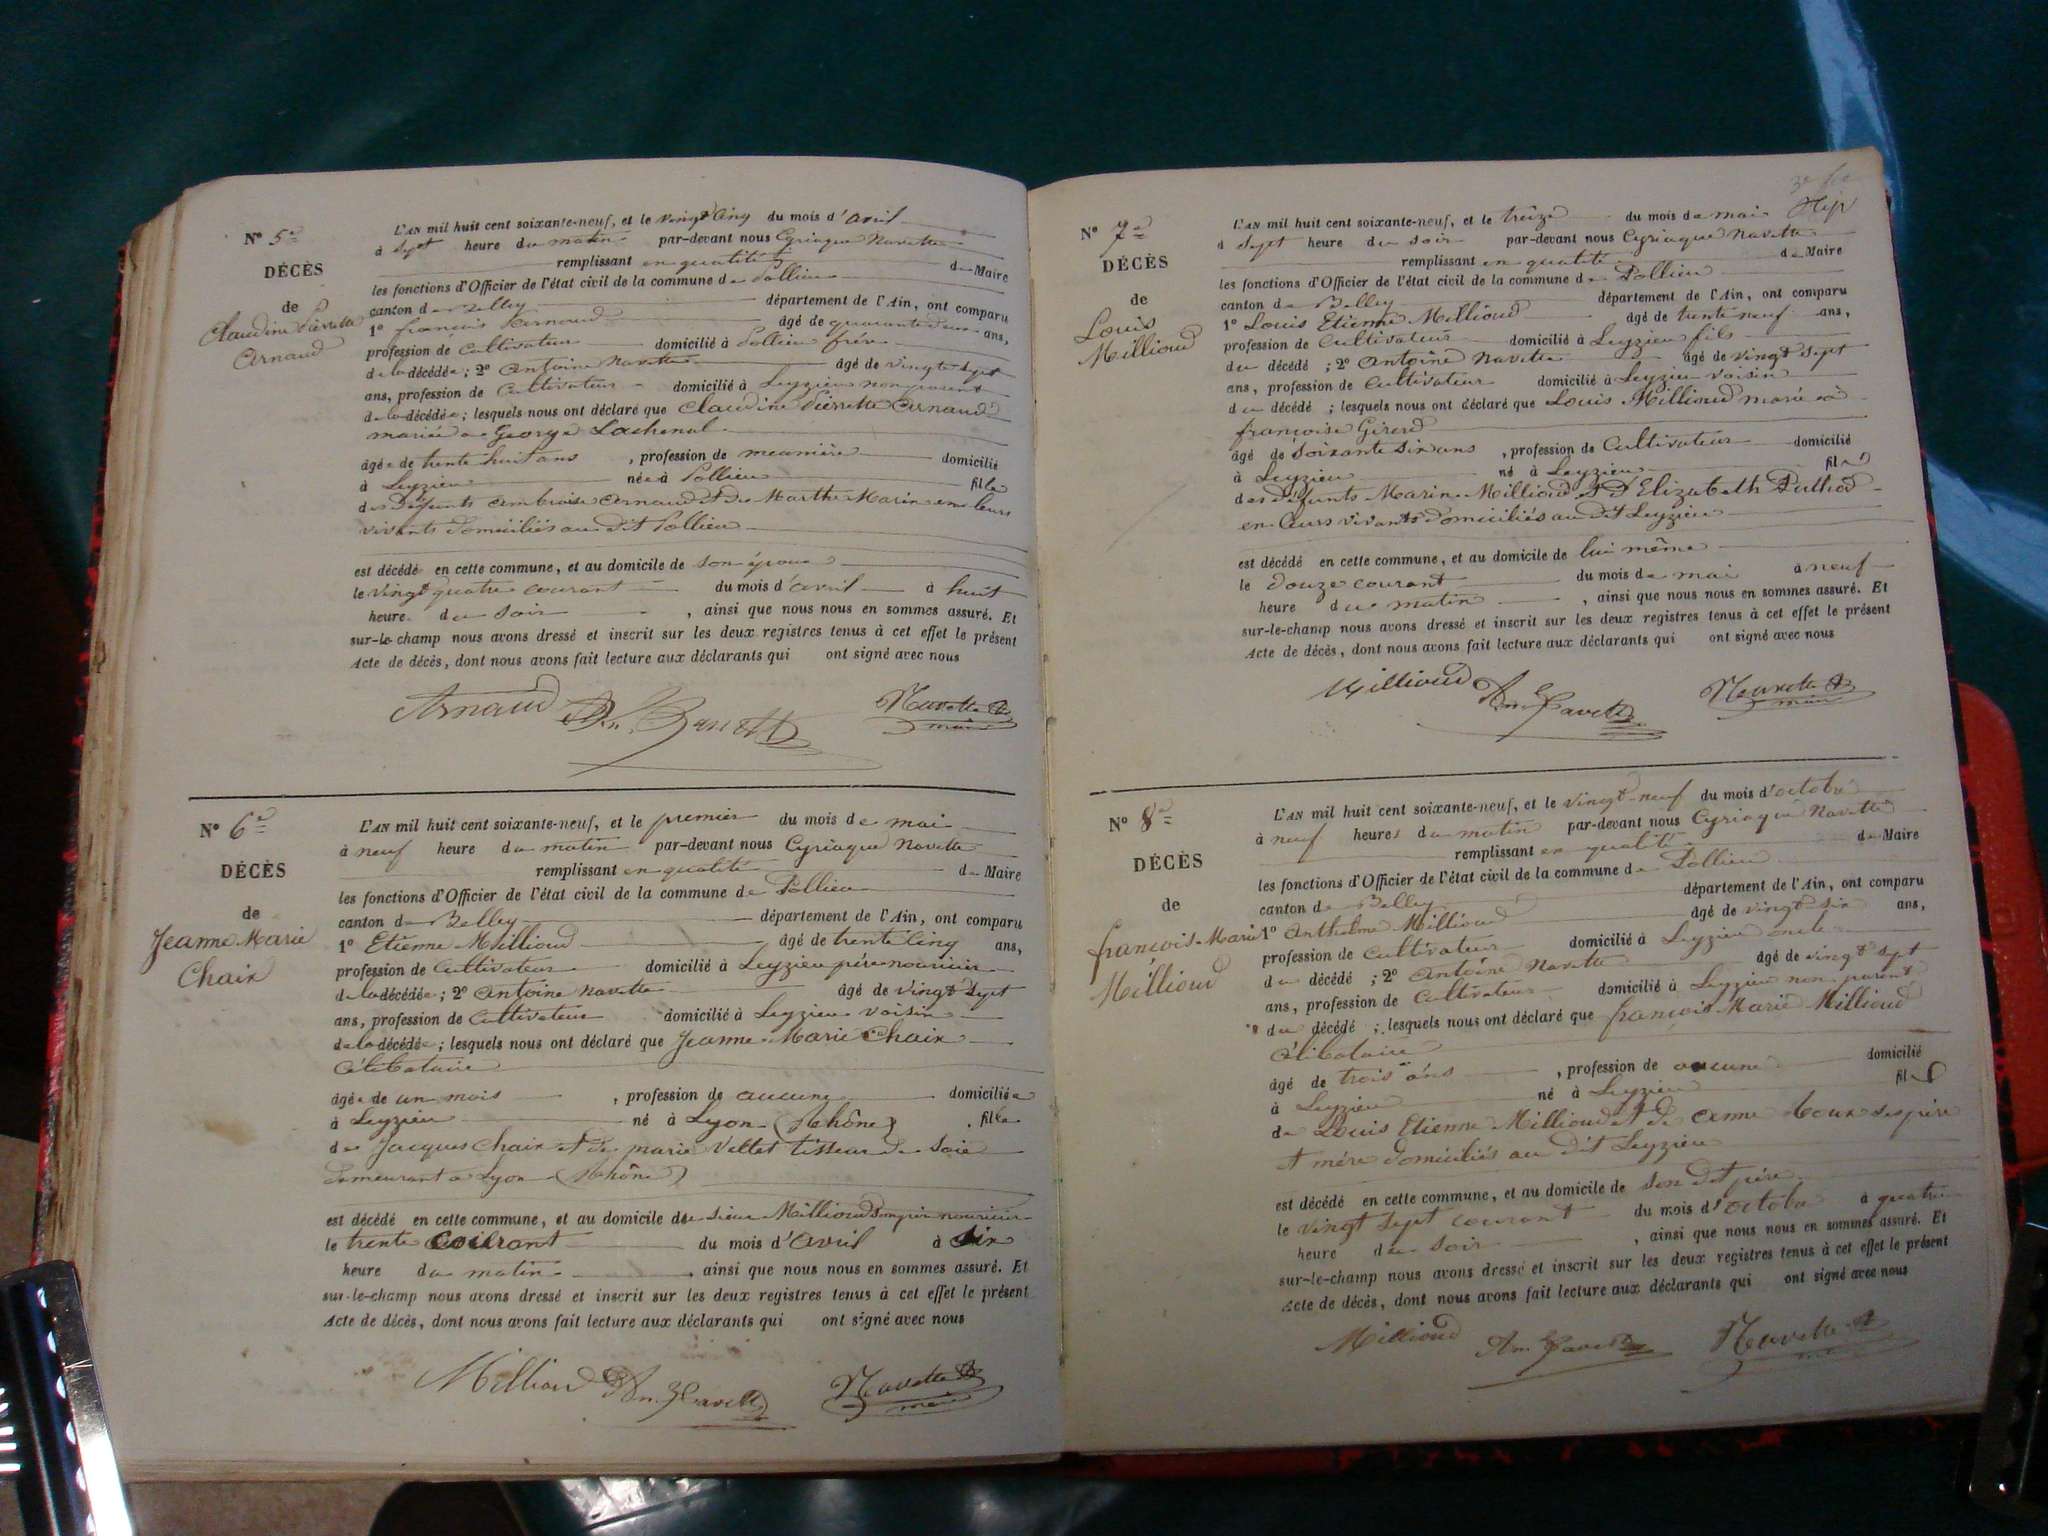 N° 5e
DÉCÈS
de
Claudine Pierrette
Arnaud
L'AN mil huit cent soixante-neuf, et le vingt cinq du mois d'avril
à sept heure du matin par-devant nous Cyriaque Navette
remplissant en qualité de Maire
les fonctions d'Officier de l'état civil de la commune de Pollieu
canton de Belley département de l'Ain, ont comparu
1° françois Arnaud âgé de quarante deux ans,
profession de Cultivateur domicilié à Pollieu frère
de la décédée ; 2° Antoine Navette âgé de vingt sept
ans, profession de Cultivateur domicilié à Leyzieu non parent
de la décédée ; lesquels nous ont déclaré que Claudine Pierrette Arnaud
mariée a George Lachenal
âgée de trente huit ans , profession de meunière domicilié
à Leyzieu née à Pollieu fille
des Défunts Ambroise Arnaud et de Marthe Marin en leurs
vivants domiciliés au dit Pollieu
est décédé en cette commune, et au domicile de son époux
le vingt quatre courant du mois d'avril à huit
heure du soir , ainsi que nous nous en sommes assuré. Et
sur-le-champ nous avons dressé et inscrit sur les deux registres tenus à cet effet le présent
Acte de décès, dont nous avons fait lecture aux déclarants qui ont signé avec nous
Arnaud An. Navette Navette
maire
N° 6e
DÉCÈS
de
Jeanne Marie
Chaix
L'AN mil huit cent soixante-neuf, et le premier du mois de mai
à neuf heure du matin par-devant nous Cyriaque Navette
remplissant en qualité de Maire
les fonctions d'Officier de l'état civil de la commune de Pollieu
canton de Belley département de l'Ain, ont comparu
1° Etienne Millioud âgé de trente cinq ans,
profession de Cultivateur domicilié à Leyzieu père nouricier
de la décédée ; 2° Antoine Navette âgé de vingt sept
ans, profession de Cultivateur domicilié à Leyzieu voisin
de la décédée ; lesquels nous ont déclaré que Jeanne Marie Chaix
Célibataire
âgée de un mois , profession de aucune domiciliée
à Leyzieu né à Lyon (Rhône) , fille
de Jacques Chaix et de marie Vettet tisseur de Soie
demeurant a Lyon (Rhône)
est décédé en cette commune, et au domicile de sieur Millioud son père nouricier
le trente courant du mois d'avril à six
heure du matin , ainsi que nous nous en sommes assuré. Et
sur-le-champ nous avons dressé et inscrit sur les deux registres tenus à cet effet le présent
Acte de décès, dont nous avons fait lecture aux déclarants qui ont signé avec nous
Millioud An. Navette Navette
maire
N° 7e
DÉCÈS
de
Louis
Millioud
L'AN mil huit cent soixante-neuf, et le treize du mois de mai
à sept heure du soir par-devant nous Cyriaque Navette
remplissant en qualité de Maire
les fonctions d'Officier de l'état civil de la commune de Pollieu
canton de Belley département de l'Ain, ont comparu
1° Louis Etienne Millioud âgé de trente neuf ans,
profession de Cultivateur domicilié à Leyzieu fils
du décédé ; 2° Antoine Navette âgé de vingt sept
ans, profession de Cultivateur domicilié à Leyzieu voisin
du décédé ; lesquels nous ont déclaré que Louis Millioud marié à
françoise Girerd
âgé de soixante six ans , profession de Cultivateur domicilié
à Leyzieu né à Leyzieu fils
des défunts Marin Millioud et d'Elizabeth
en leurs vivants domiciliés au dit Leyzieu
est décédé en cette commune, et au domicile de lui même
le douze courant du mois de mai à neuf
heure du matin , ainsi que nous nous en sommes assuré. Et
sur-le-champ nous avons dressé et inscrit sur les deux registres tenus à cet effet le présent
Acte de décès, dont nous avons fait lecture aux déclarants qui ont signé avec nous
Millioud An. Navette Navette
maire
N° 8e
DÉCÈS
de
françois Marie
Millioud
L'AN mil huit cent soixante-neuf, et le vingt-neuf du mois d'octobre
à neuf heures du matin par-devant nous Cyriaque Navette
remplissant en qualité de Maire
les fonctions d'Officier de l'état civil de la commune de Pollieu
canton de Belley département de l'Ain, ont comparu
1° Anthelme Millioud âgé de vingt six ans,
profession de Cultivateur domicilié à Leyzieu oncle
du décédé ; 2° Antoine Navette âgé de vingt sept
ans, profession de Cultivateur domicilié à Leyzieu non parent
du décédé ; lesquels nous ont déclaré que françois Marie Millioud
Célibataire
âgé de trois ans , profession de aucune domicilié
à Leyzieu né à Leyzieu fils
de Louis Etienne Millioud et de Anne ses père
et mère domiciliés au dit Leyzieu
est décédé en cette commune, et au domicile de son dit père
le vingt sept courant du mois d'octobre à quatre
heure du soir , ainsi que nous nous en sommes assuré. Et
sur-le-champ nous avons dressé et inscrit sur les deux registres tenus à cet effet le présent
Acte de décès, dont nous avons fait lecture aux déclarants qui ont signé avec nous
Millioud An. Navette Navette